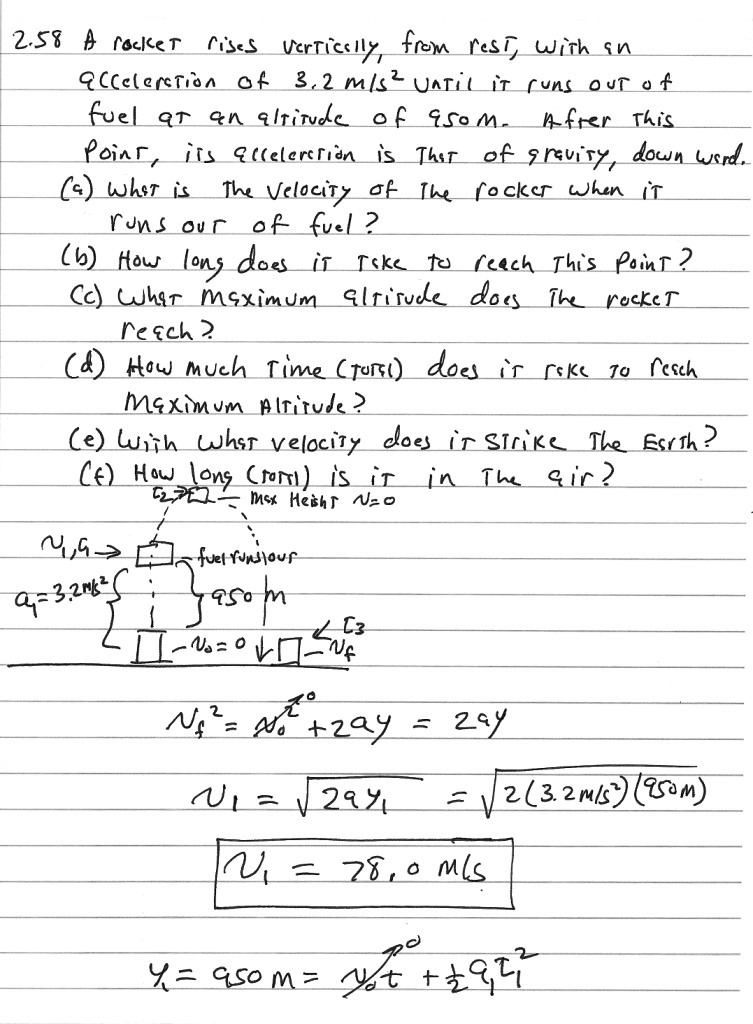 2.58 A rocket rises vertically, from rest, with an
acceleration of 3.2 m/s² until it runs out of
fuel at an altitude of 950 m. After this
point, its acceleration is that of gravity, down ward.
(a) What is the velocity of the rocket when it
runs out of fuel?
(b) How long does it take to reach this point?
(c) What maximum altitude does the rocket
reach?
(d) How much time (total) does it take to reach
maximum Altitude?
(e) With what velocity does it strike the Earth?
(f) How long (total) is it in the air?
t₂ → — max Height v=0
v₁, a → — fuel runs out
a₁ = 3.2 m/s² 950 m
— v₀ = 0 ↓ — v_f ← t₃
v_f² = v₀² ↗0 + 2ay = 2ay
v₁ = √2ay₁ = √2(3.2 m/s²)(950m)
v₁ = 78.0 m/s
y₁ = 950 m = v₀t ↗0 + ½a₁t₁²